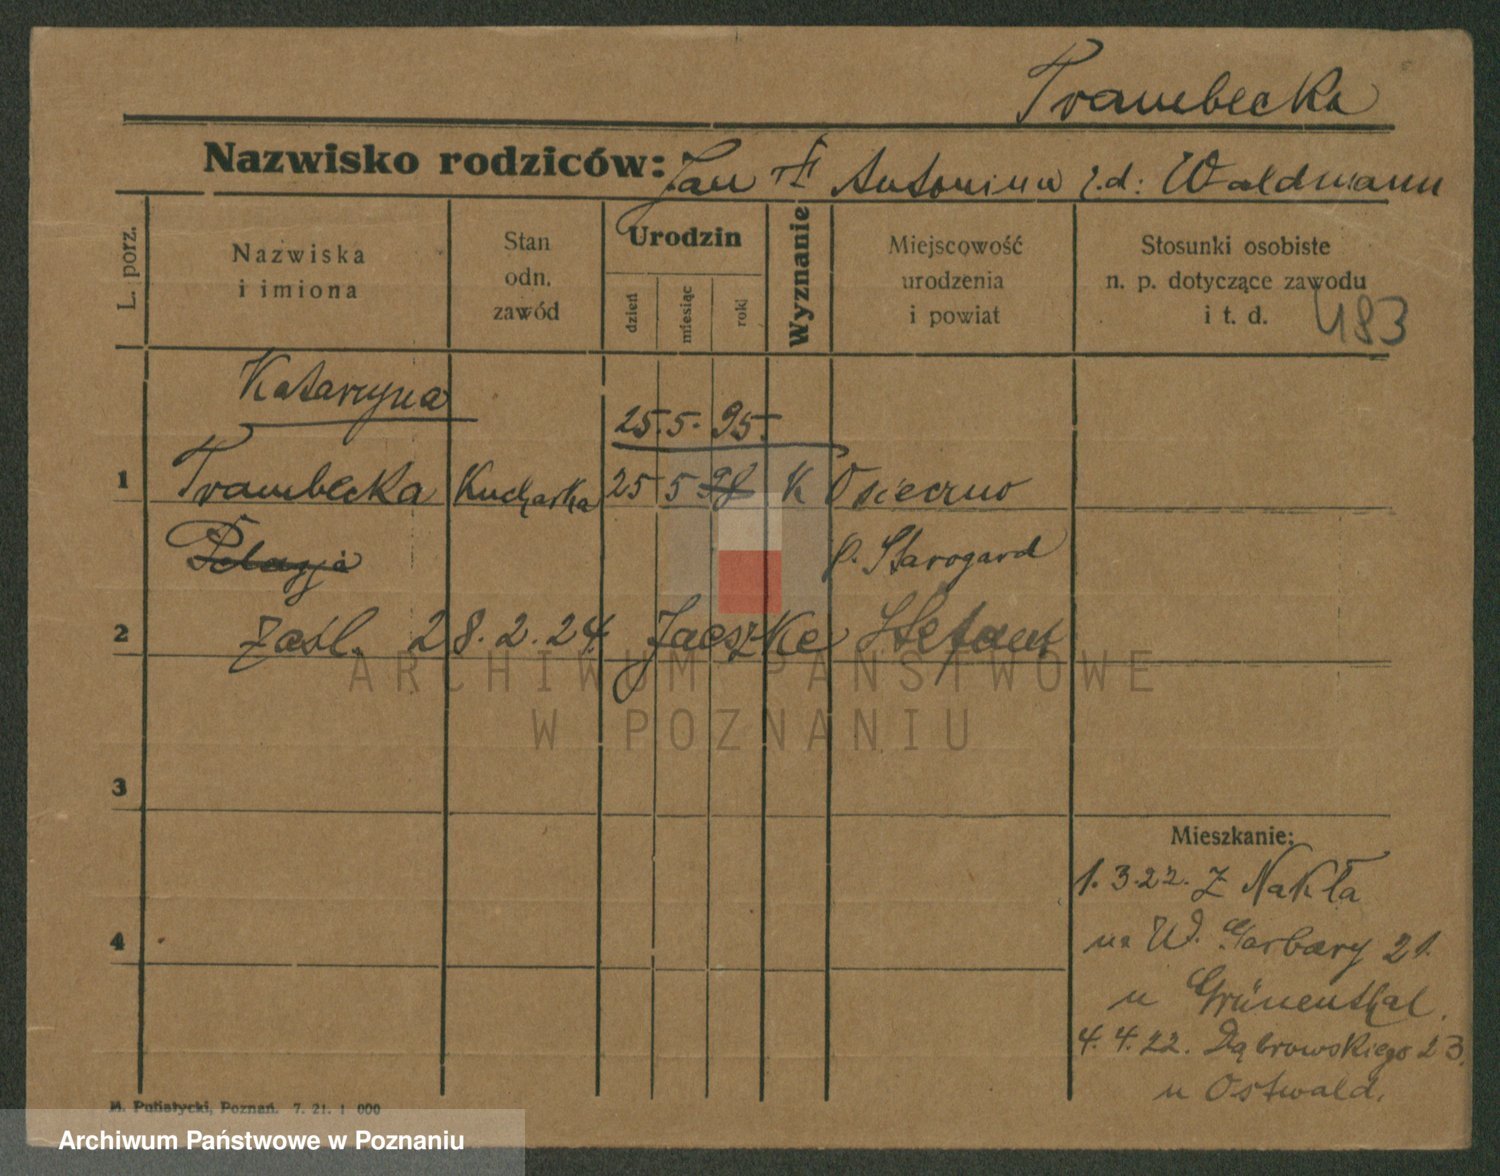 Trambecka
Nazwisko rodziców: Jan Antonina z.d: Waldmann
L. porz.
Nazwiska
i imiona
Stan
odn.
zawód
Urodzin
dzień
miesiąc
roki
Wyznanie
Miejscowość
urodzenia
i powiat
Stosunki osobiste
n. p. dotyczące zawodu
i t. d.
483
Katarzyna
25.5.95.
1 Trambecka Kucharka 25 5 98 K Osieczno
Pelagja p. Starogard
2 zaśl. 28.2.24 Jaeszke Stefan
3
Mieszkanie:
1.3.22. z Nakła
na W. Garbary 21.
4
u Grünenthal.
4.4.22. Dąbrowskiego 23.
u Ostwald.
M. Putiatycki, Poznań. 7. 21. 1 000
ARCHIWUM PAŃSTWOWE
W POZNANIU
Archiwum Państwowe w Poznaniu